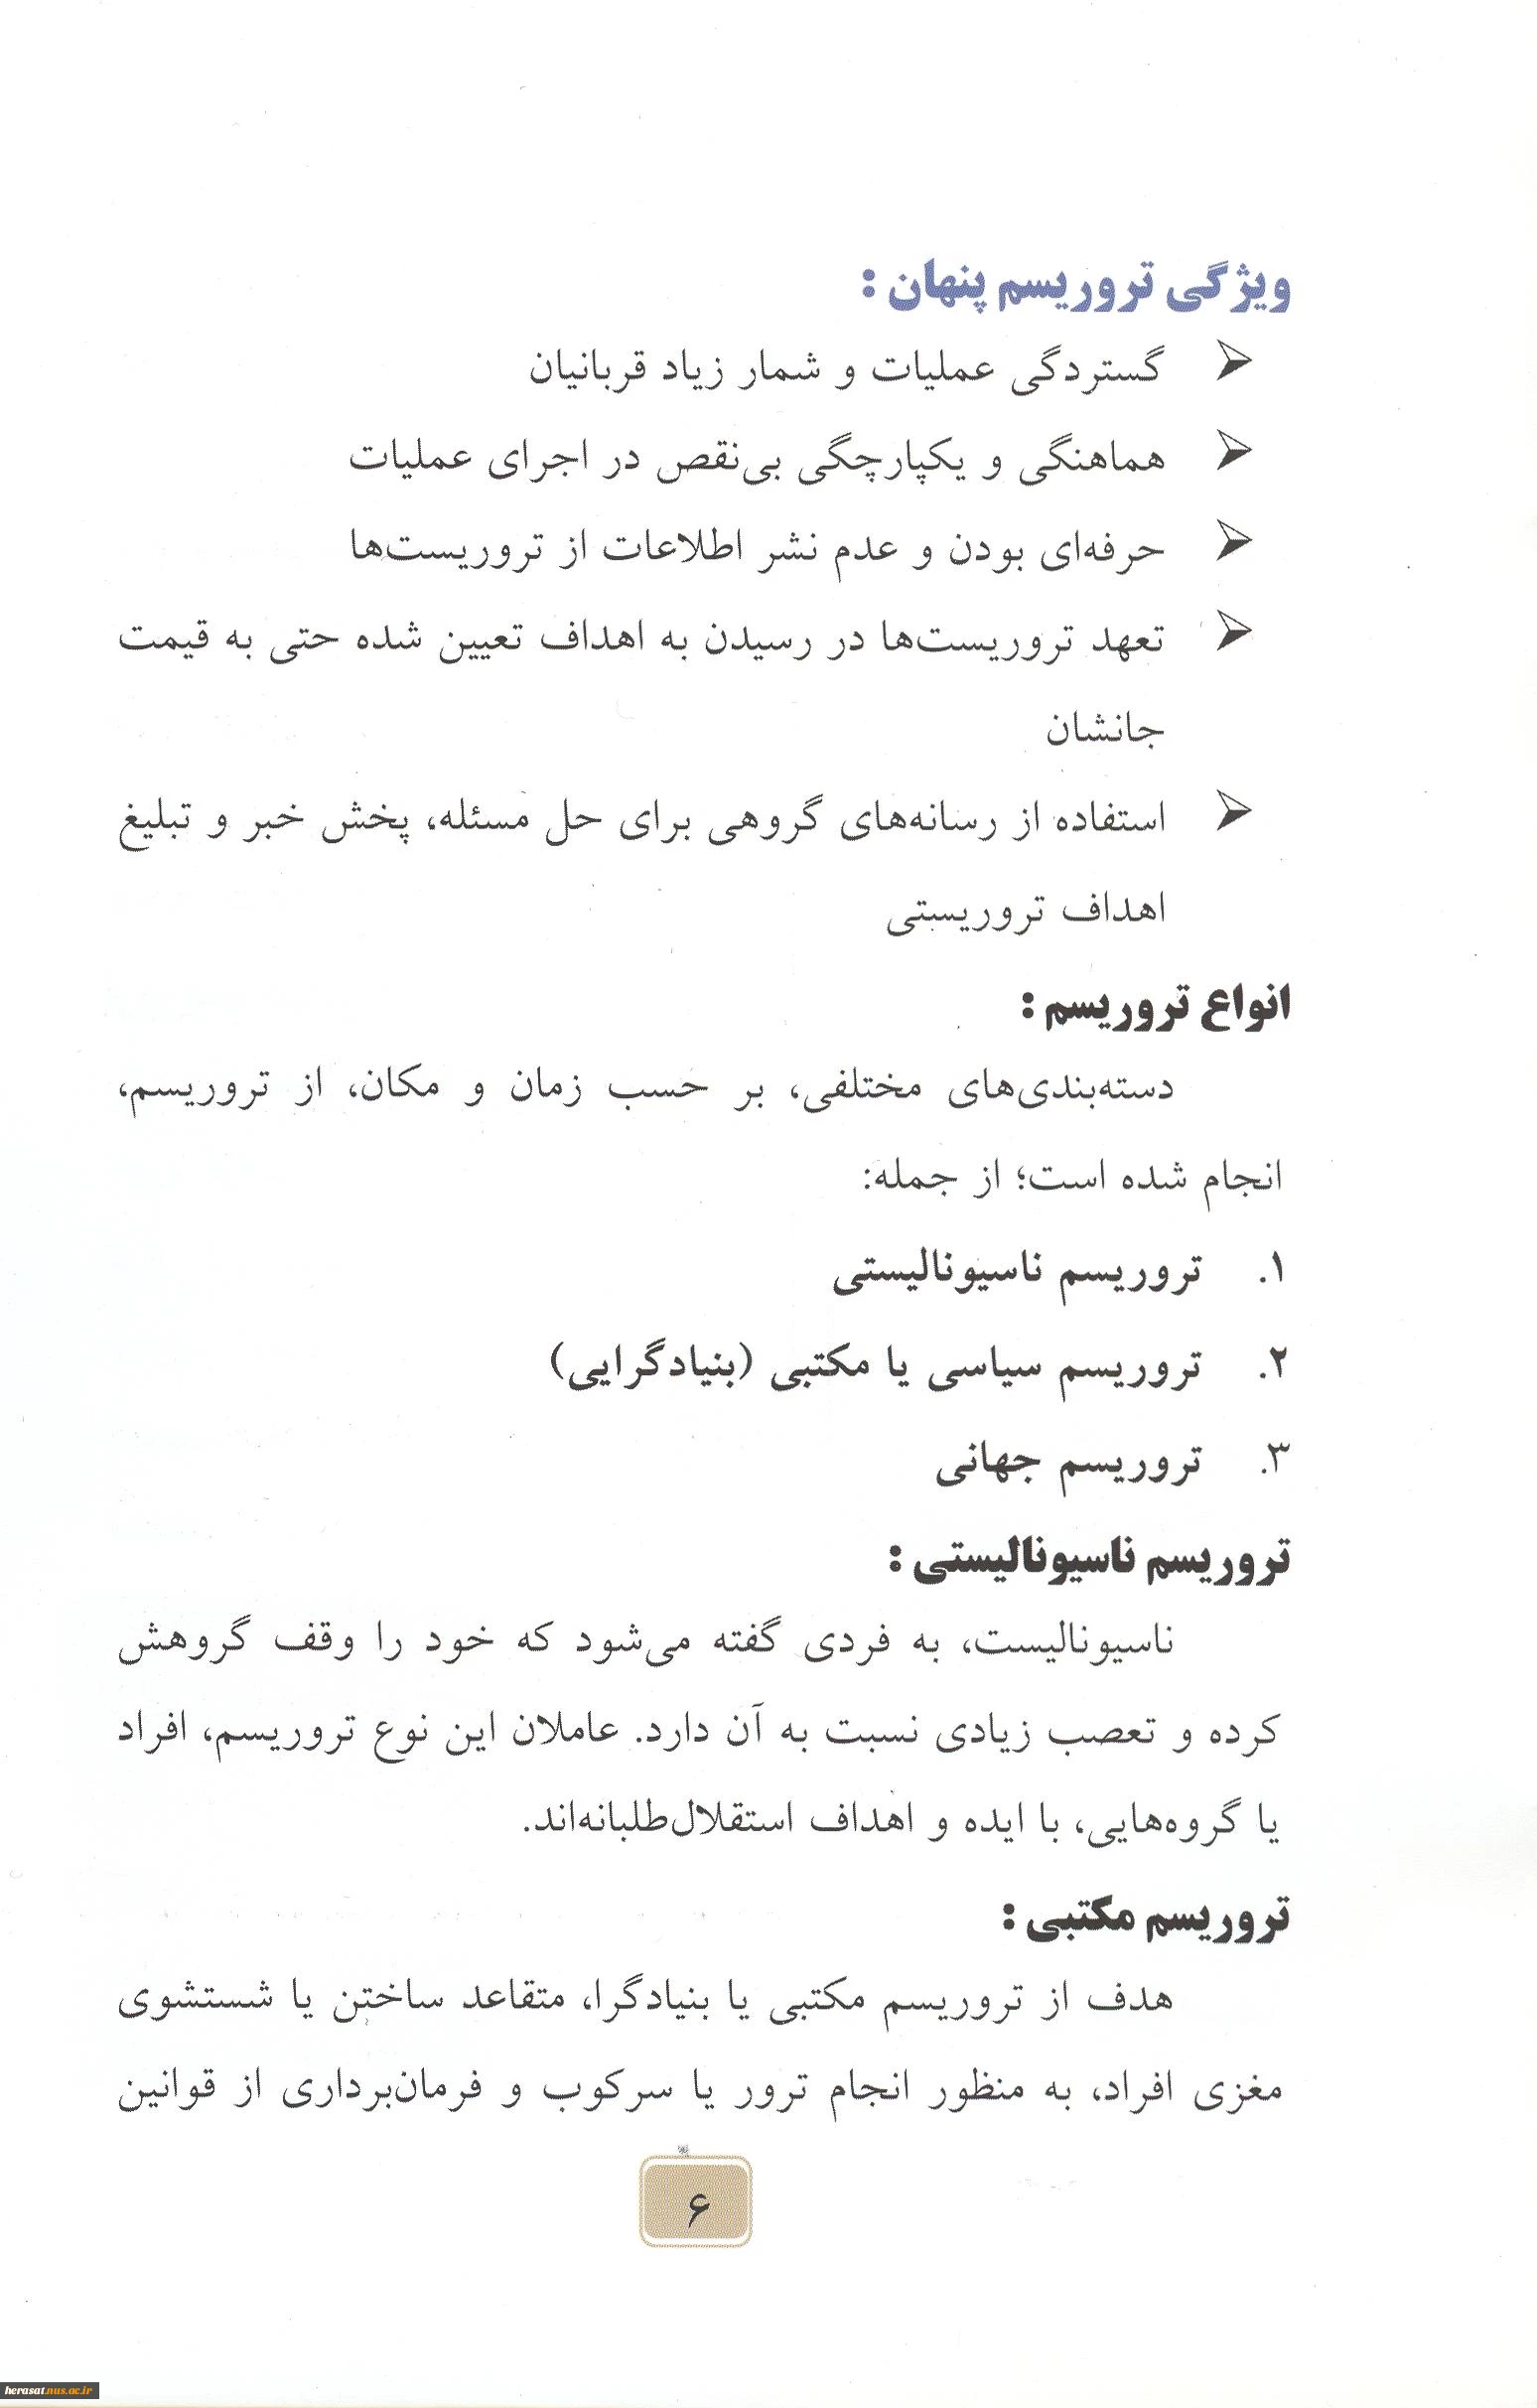 ویژگی تروریسم پنهان :
➢ گستردگی عملیات و شمار زیاد قربانیان
➢ هماهنگی و یکپارچگی بی‌نقص در اجرای عملیات
➢ حرفه‌ای بودن و عدم نشر اطلاعات از تروریست‌ها
➢ تعهد تروریست‌ها در رسیدن به اهداف تعیین شده حتی به قیمت
جانشان
➢ استفاده از رسانه‌های گروهی برای حل مسئله، پخش خبر و تبلیغ
اهداف تروریستی
انواع تروریسم :
دسته‌بندی‌های مختلفی، بر حسب زمان و مکان، از تروریسم،
انجام شده است؛ از جمله:
۱. تروریسم ناسیونالیستی
۲. تروریسم سیاسی یا مکتبی (بنیادگرایی)
۳. تروریسم جهانی
تروریسم ناسیونالیستی :
ناسیونالیست، به فردی گفته می‌شود که خود را وقف گروهش
کرده و تعصب زیادی نسبت به آن دارد. عاملان این نوع تروریسم، افراد
یا گروه‌هایی، با ایده و اهداف استقلال‌طلبانه‌اند.
تروریسم مکتبی :
هدف از تروریسم مکتبی یا بنیادگرا، متقاعد ساختن یا شستشوی
مغزی افراد، به منظور انجام ترور یا سرکوب و فرمان‌برداری از قوانین
۶
herasat.nus.ac.ir